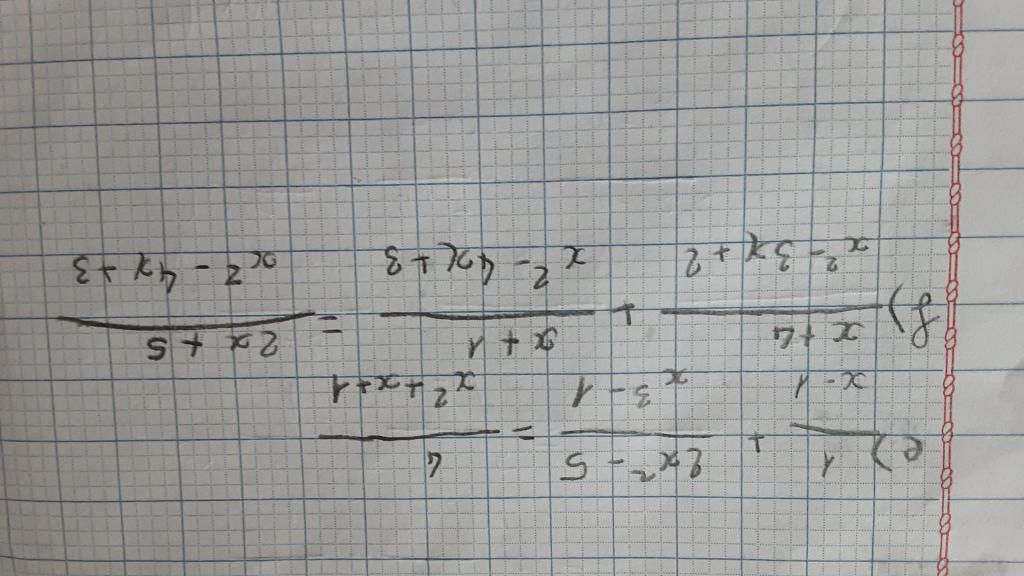 e) 1/(x - 1) + (2x² - 5)/(x³ - 1) = 4/(x² + x + 1)
f) (x + 4)/(x² - 3x + 2) + (x + 1)/(x² - 4x + 3) = (2x + 5)/(x² - 4x + 3)